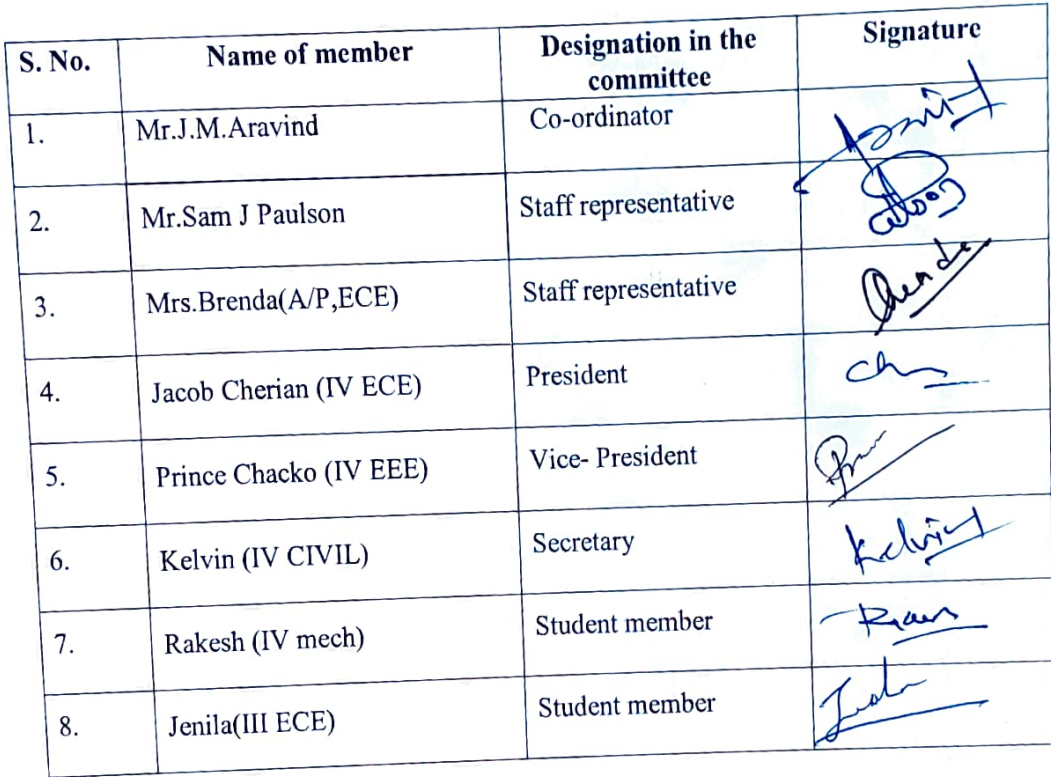 S. No. Name of member Designation in the Signature
committee
1. Mr.J.M.Aravind Co-ordinator
2. Mr.Sam J Paulson Staff representative
3. Mrs.Brenda(A/P,ECE) Staff representative
4. Jacob Cherian (IV ECE) President
5. Prince Chacko (IV EEE) Vice- President
6. Kelvin (IV CIVIL) Secretary Kelvin
7. Rakesh (IV mech) Student member
8. Jenila(III ECE) Student member